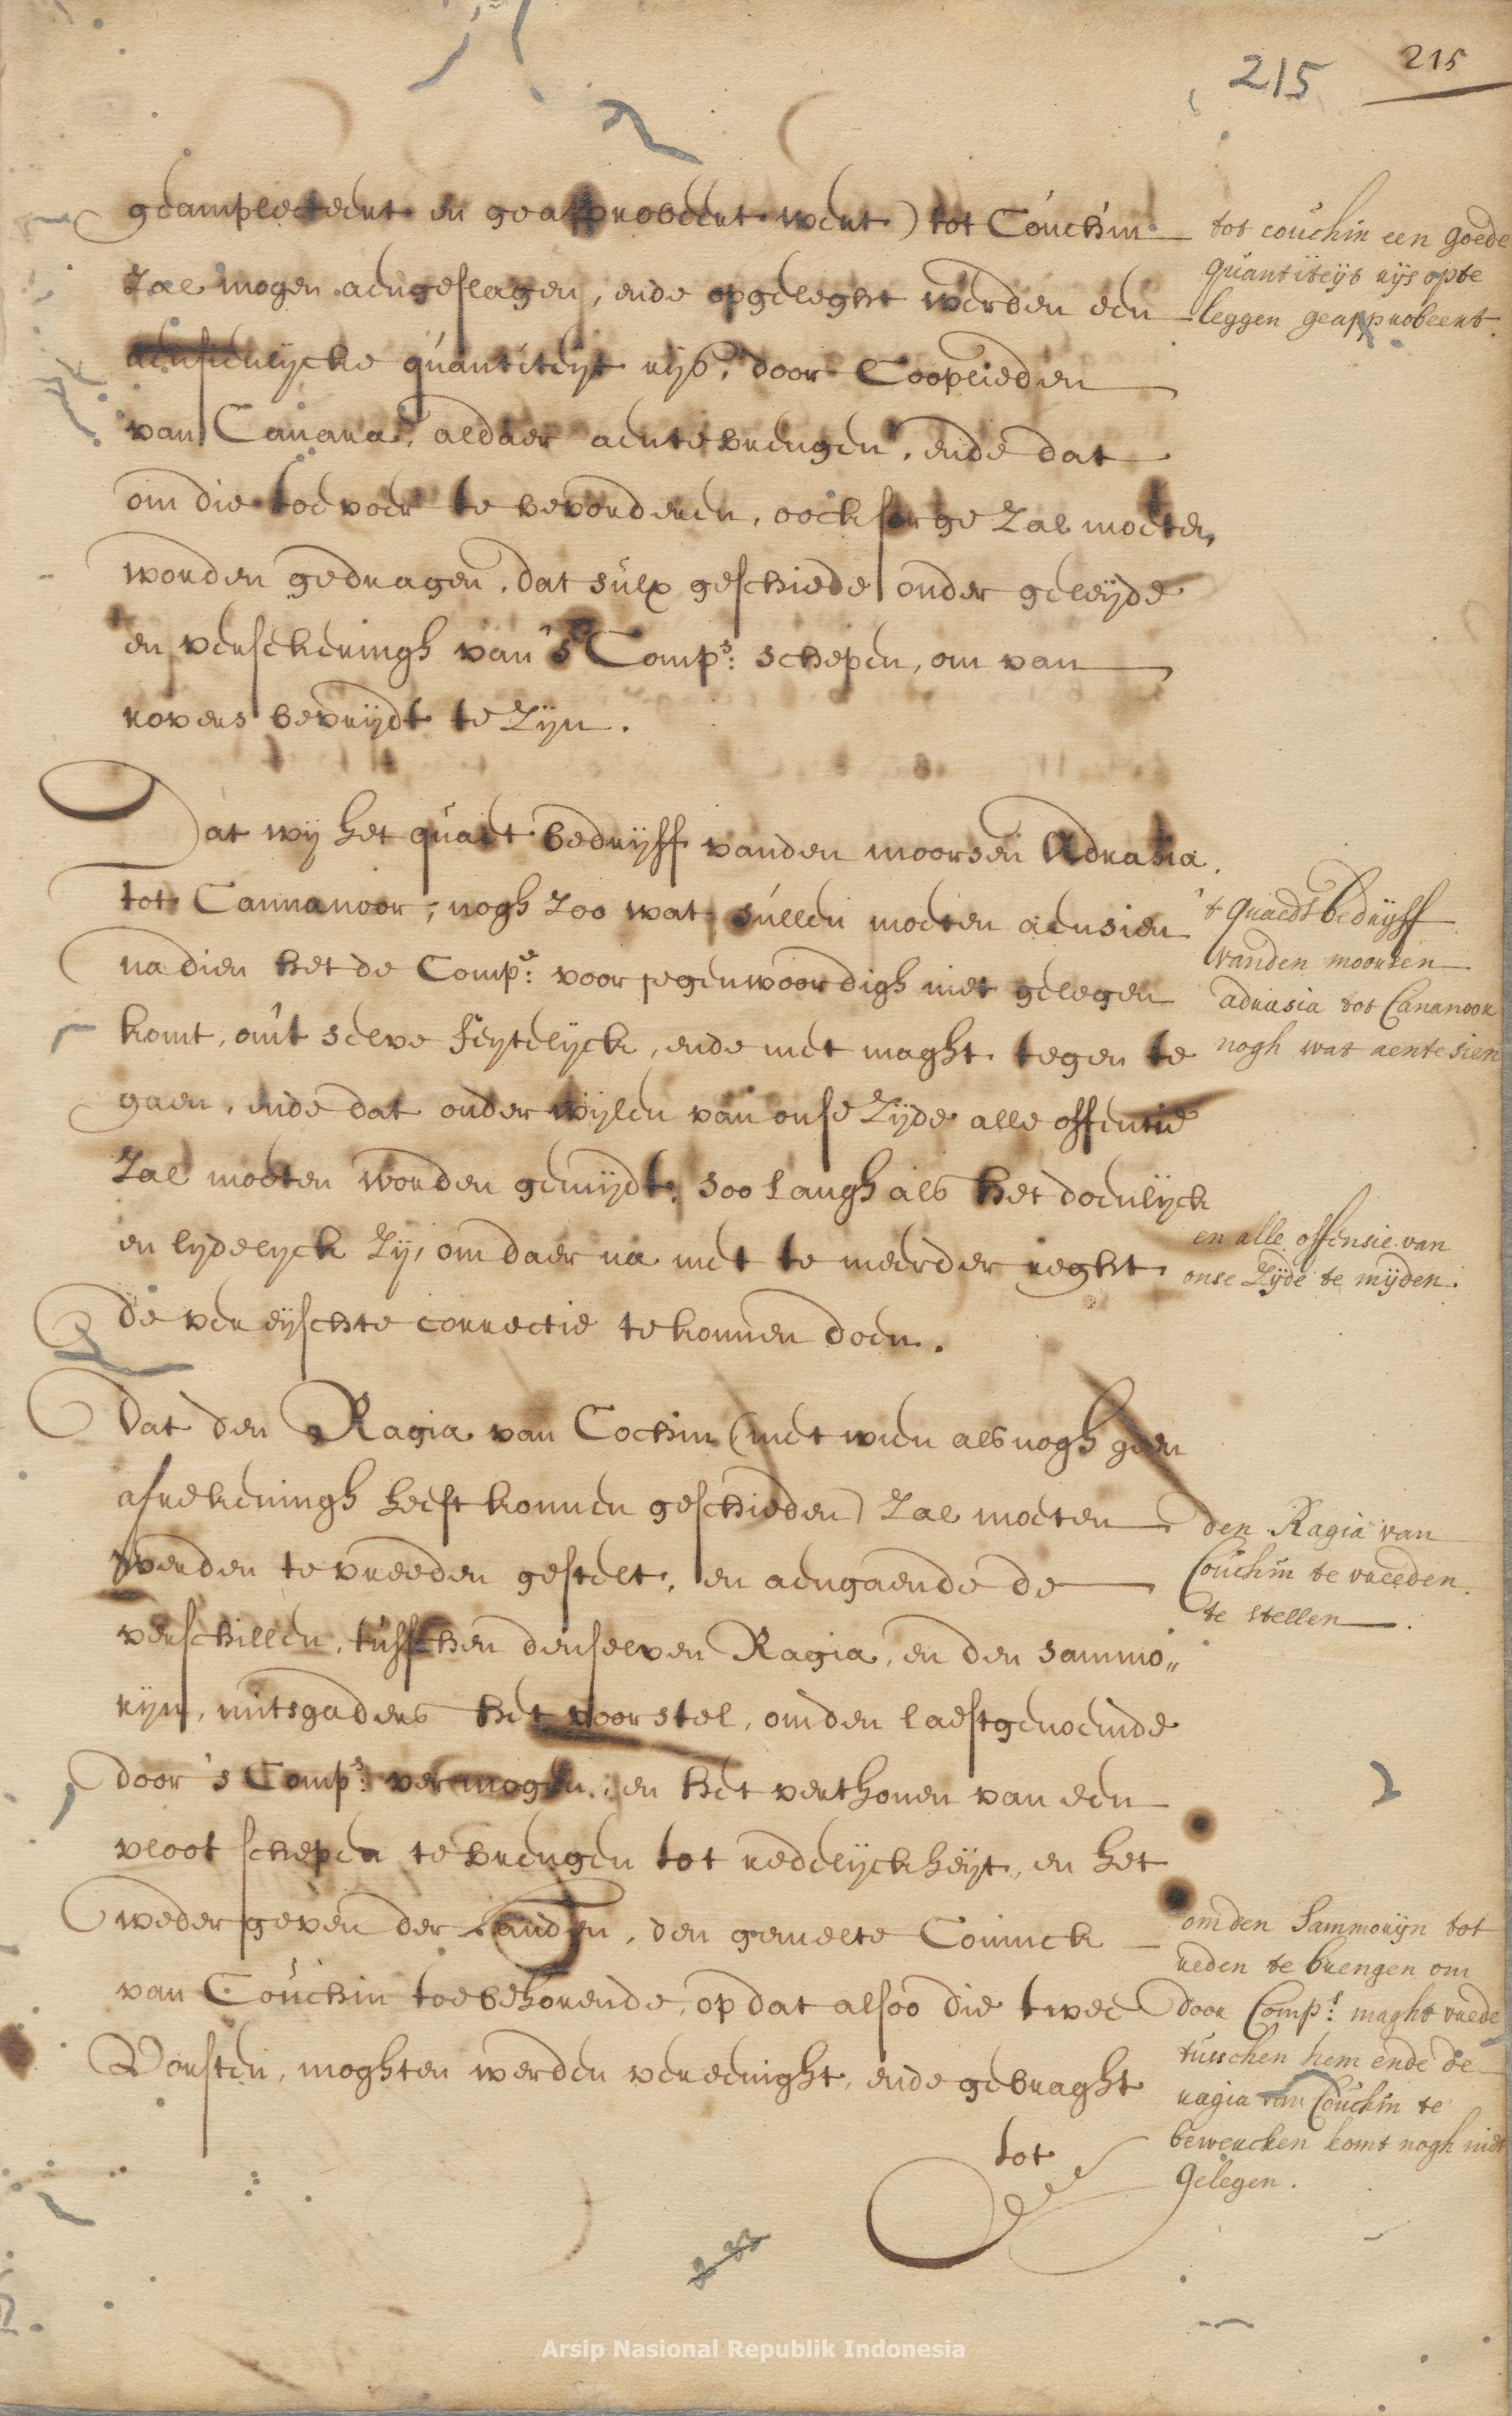 215
215
geamplecteert en geapprobeert wert) tot Couchin
zal mogen aengeslagen, ende opgeleght werden een
aensienlycke quantiteyt rijs, door Cooplieden
van Canara, aldaer aentebrengen, ende dat
om die toevoer te bevorderen, oock sorge zal moeten
worden gedragen, dat sulx geschiede onder geleyde
en versekeringh van 's Comps: schepen, om van
rovers bevrijdt te zijn.
tot couchin een goede
quantiteyt rijs opte
leggen geapprobeert.
Dat wij het quaet bedrijff vanden moorsen Adrasia
tot Cannanoor, nogh zoo wat sullen moeten aensien
nadien het de Compe: voor jegenwoordigh niet gelegen
komt, om 't selve feytelyck, ende met maght tegen te
gaen, ende dat onderwijlen van onse zijde alle offentie
zal moeten worden gemijdt, soo langh als het doenlijck
en lydelyck zij, om daer na met te meerder reght
de vereijschte correctie te konnen doen.
't quaedt bedrijff
vanden moorsen
adrasia tot Cananoor
nogh wat aentesien
en alle offensie van
onse zijde te mijden.
Dat den Ragia van Cochin (met wien als nogh geen
afrekeningh heeft konnen geschieden) zal moeten
werden te vreeden gestelt, en aengaende de
verschillen, tusschen denselven Ragia, en den sammo„
rijn, mitsgaders het voorstel, om den laestgenoemde
door 's Comps: vermogen, en het verthonen van een
vloot schepen te brengen tot redelyckheyt, en het
wedergeven der Landen, den gemelte Coninck
van Couchin toebehorende, op dat alsoo die twee
Vorsten, moghten werden vereenight, ende gebraght
tot
den Ragia van
Couchin te vreeden
te stellen.
om den Sammorijn tot
reden te brengen om
door Comps: maght vrede
tusschen hem ende de
ragia van Couchin te
bewercken komt nogh niet
gelegen.
Arsip Nasional Republik Indonesia